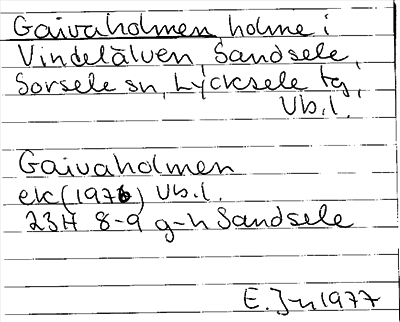 Gaivaholmen, holme i
Vindelälven, Sandsele,
Sorsele sn, Lycksele tg,
Vb.l.
Gaivaholmen
ek (1976) Vb.l.
23H 8-9 g-h Sandsele
E.J-n 1977